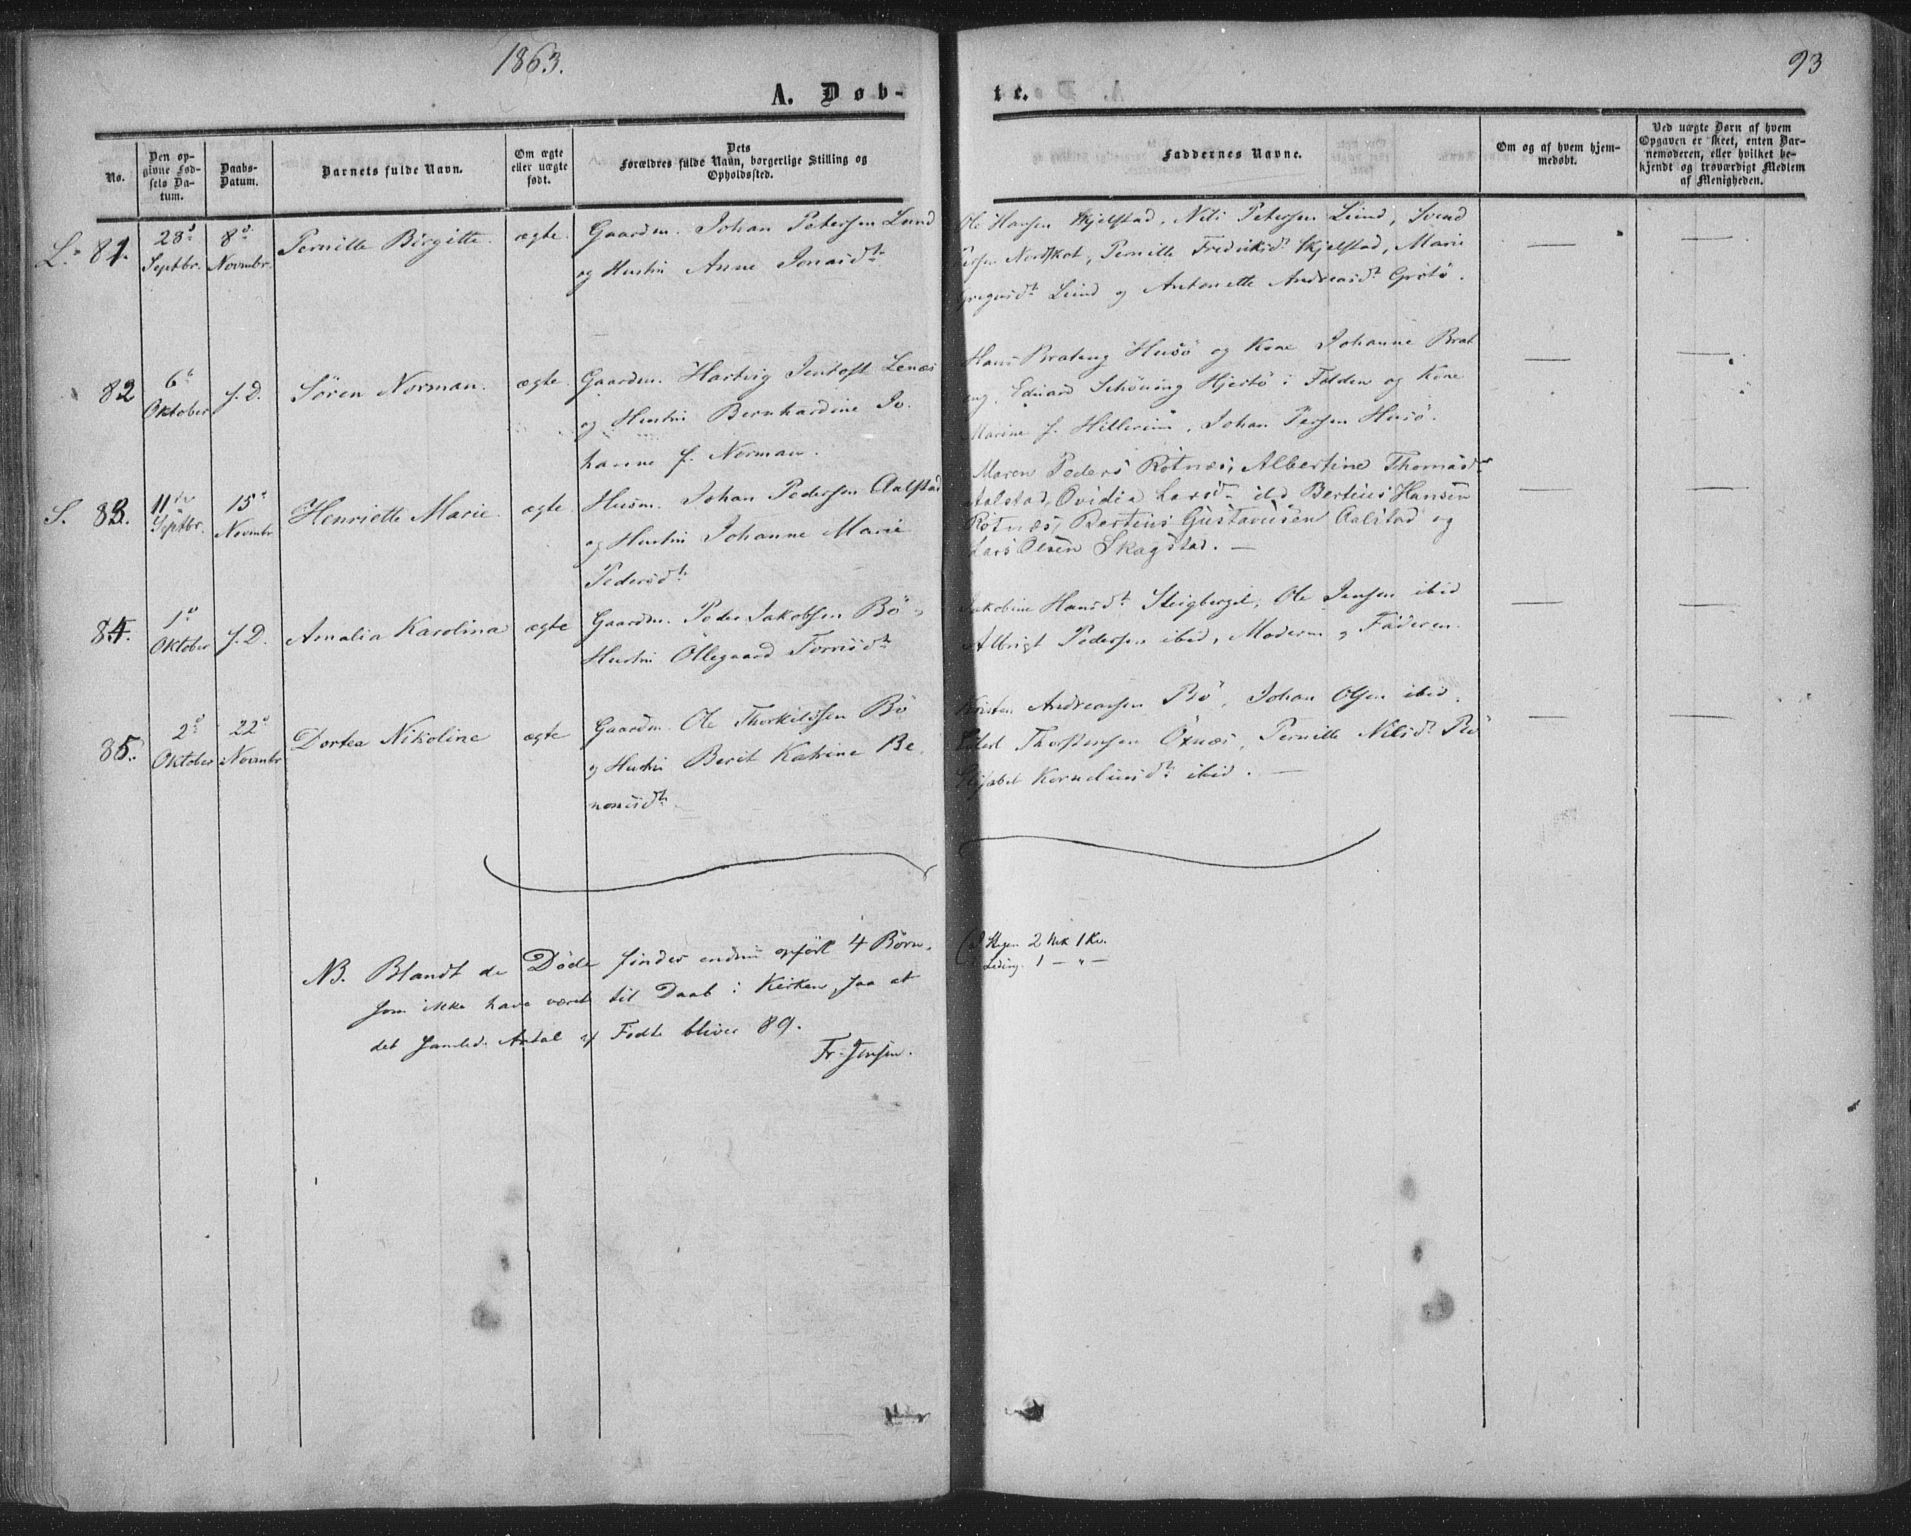 1863.
93
A. Døb-
te.
No.
Den opgivne Fødsels Datum.
Daabs-Datum.
Barnets fulde Navn.
Om ægte eller uægte født.
Dets Forældres fulde Navn, borgerlige Stilling og Opholdssted.
Faddernes Navne.
Om og af hvem hjemmedøbt.
Ved uægte Børn af hvem Opgaven er skeet, enten Barnemoderen, eller hvilket bekjendt og troværdigt Medlem af Menigheden.
L. 81. 28de Septbr. 8de Novmbr. Pernille Birgitte. ægte. Gaardm. Johan Petersen Lund
og Hustru Anne Jonasdtr
Ole Hansen Skjelstad, Nils Petersen Lund, Svend
Nordskot, Pernille Frediksdtr Skjelstad, Marie
Lund og Antonette Andreasdtr Grøtø.
82 6te Oktober s. D. Sören Norman. ægte. Gaardm. Hartvig Jentoft Lenæs
og Hustru Bernhardine Jo-
hanne f. Norman.
Hans Brateng Husö og Kone Johanne Brat
eng. Eduard Schöning Hjertö i Folden og Kone
Marine f. , Johan Persen Husö.
S. 83. 11te Septbr. 15de Novmbr Henriette Marie. ægte Husm. Johan Pedersen Aalstad
og Hustru Johanne Marie
Pedersdtr
Maren Peders Røtnæs, Albertine Thomasdtr
Aalstad, Ovidia Larsdtr ibd Bertius Hansen
Røtnæs, Bertius Gustavusen Aalstad og
Lars Olsen Skagstad. —
84. 1ste Oktober s. D. Amalia Karolina ægte Gaardm. Peder Jakobsen Bö-
Hustru Ollegaard Torrisdtr
Jakobine Hansdtr Steigberget, Ole Jensen ibid
Albrigt Pedersen ibid, Moderen og Faderen.
85. 2de Oktober 22de Novmbr Dortea Nikoline ægte Gaardm. Ole Thorkilssen Bö
og Hustru Berit Katrine Be-
nonisdtr
Kristen Andreassen Bö, Johan Olsen ibid.
Thorstensen Öxnæs, Pernille Nilsdtr Bö
Elisabet Korneliusdtr ibid. —
NB. Blandt de Döde findes endnu opfört 4 Börn,
som ikke have været til Daab i Kirken, saa at
det samled. Antal af Födte bliver 89.
Fr. Jensen.
2 Mk 1 Kv.
Leding. 1 — " —